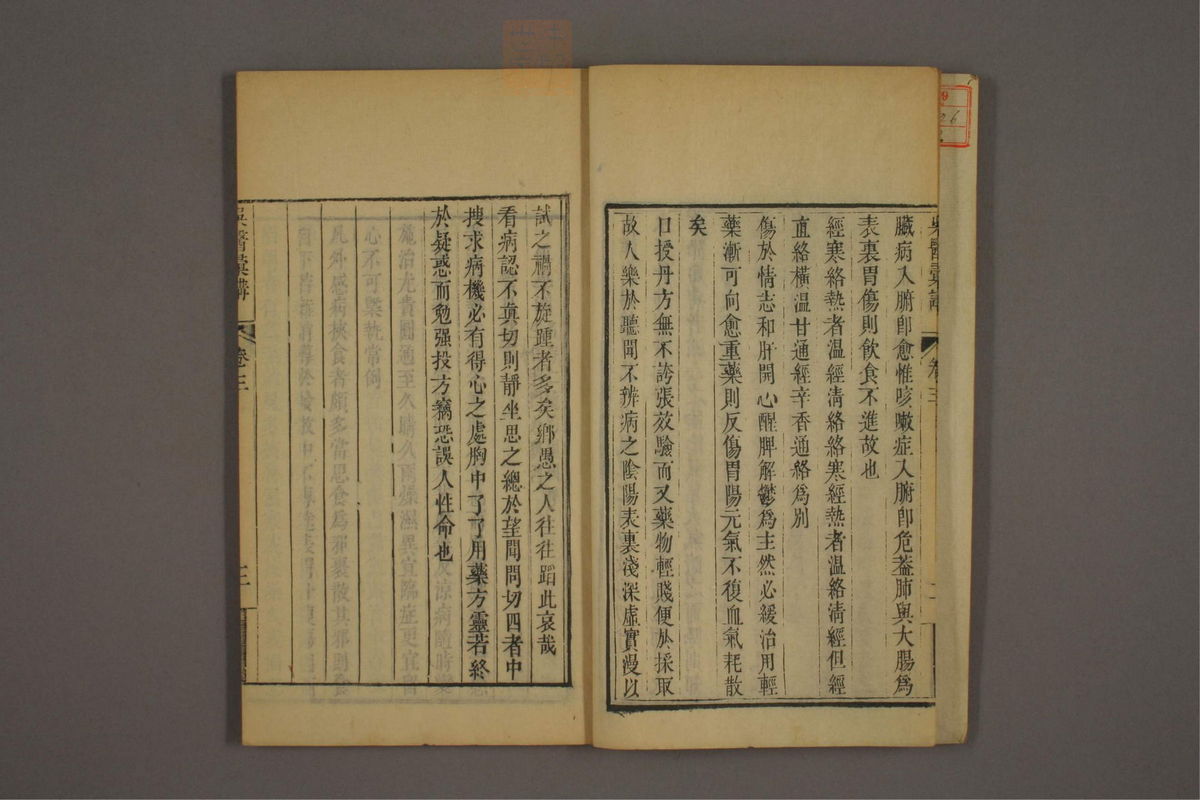 臟病入腑卽愈惟咳嗽症入腑卽危葢肺與大腸爲
表裏胃傷則飲食不進故也
經寒絡熱者温經清絡絡寒經熱者温絡清經但經
直絡橫温甘通經辛香通絡爲別
傷於情志和肝開心醒脾解鬱爲主然必緩治用輕
藥漸可向愈重藥則反傷胃陽元氣不復血氣耗散
矣
口授丹方無不誇張效驗而又藥物輕賤便於採取
故人樂於聽聞不辨病之陰陽表裏淺深虛實漫以
試之禍不旋踵者多矣鄉愚之人往往蹈此哀哉
看病認不真切則靜坐思之總於望聞問切四者中
搜求病機必有得心之處胸中了了用藥方靈若終
於疑惑而勉强投方竊恐誤人性命也
吳醫彙講
卷三
三